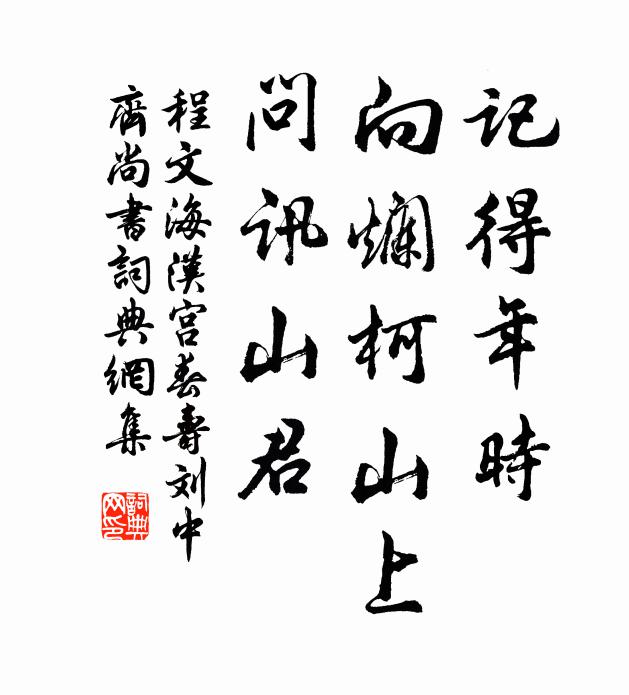 記得年時
向爛柯山上
問訊山君
程文海漢宮春壽刘中
齋尚書詞典網集
詞典
网印